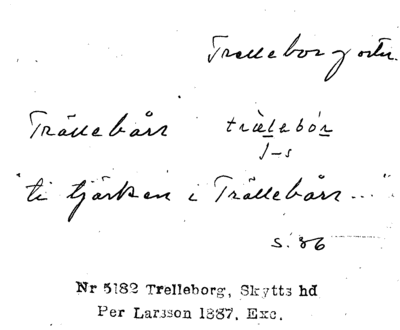 Trelleborg ortn.
Trällebårr trælebor
J-s
"ti tjärken i Trällebårr..."
s. 36
Nr 5182 Trelleborg, Skytts hd
Per Larsson 1887. Exc.